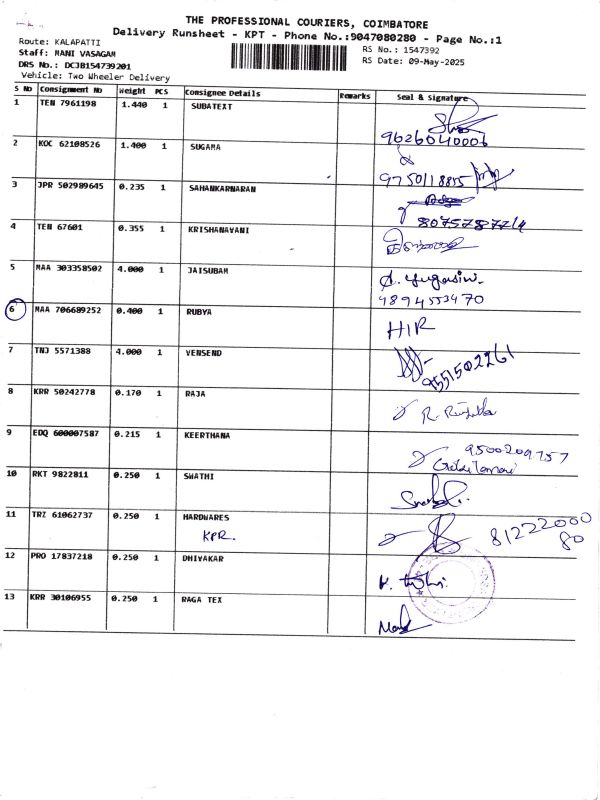 THE PROFESSIONAL COURIERS, COIMBATORE
Delivery Runsheet - KPT - Phone No.:9047080280 - Page No.:1
Route: KALAPATTI
Staff: MANI VASAGAM
RS No.: 1547392
DRS No.: DCJB154739201
RS Date: 09-May-2025
Vehicle: Two Wheeler Delivery
S No Consignment No Weight PCS Consignee Details Remarks Seal & Signature
1 TEN 7961198 1.440 1 SUBATEXT
9626040006
2 KOC 62108526 1.400 1 SUGAMA
3 JPR 502989645 0.235 1 SAHANKARNARAN
4 TEN 67601 0.355 1 KRISHANAVANI
5 MAA 303358502 4.000 1 JAISUBAM
4894553470
6 MAA 706689252 0.400 1 RUBYA
HIR
7 TNJ 5571388 4.000 1 VENSEND
9551502261
8 KRR 50242778 0.170 1 RAJA
9 EDQ 600007587 0.215 1 KEERTHANA
9500209757
10 RKT 9822811 0.250 1 SWATHI
11 TRZ 61062737 0.250 1 HARDWARES
KPR.
81222000
80
12 PRO 17837218 0.250 1 DHIVAKAR
13 KRR 30106955 0.250 1 RAGA TEX